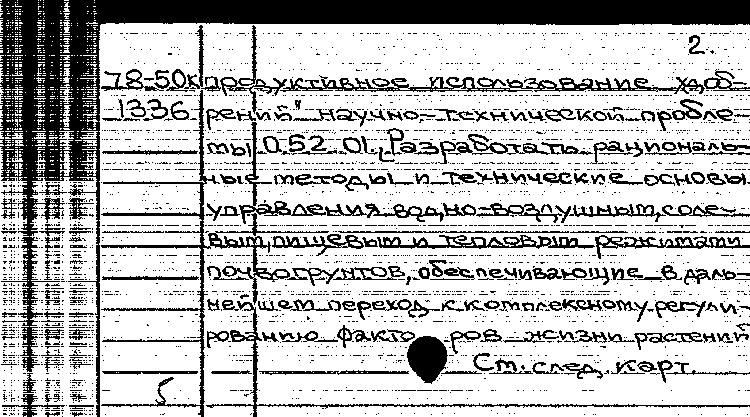 2.
78-50к продуктивное использование удоб-
1336 рений" научно-технической пробле-
мы 0.52.01. „Разработать рациональ-
ные методы и технические основы
управления водно-воздушным, соле-
вым, пищевым и тепловым режимами
почвогрунтов, обеспечивающие в даль-
нейшем переход к комплексному регули-
рованию факто ров жизни растений
См. след. карт.
5